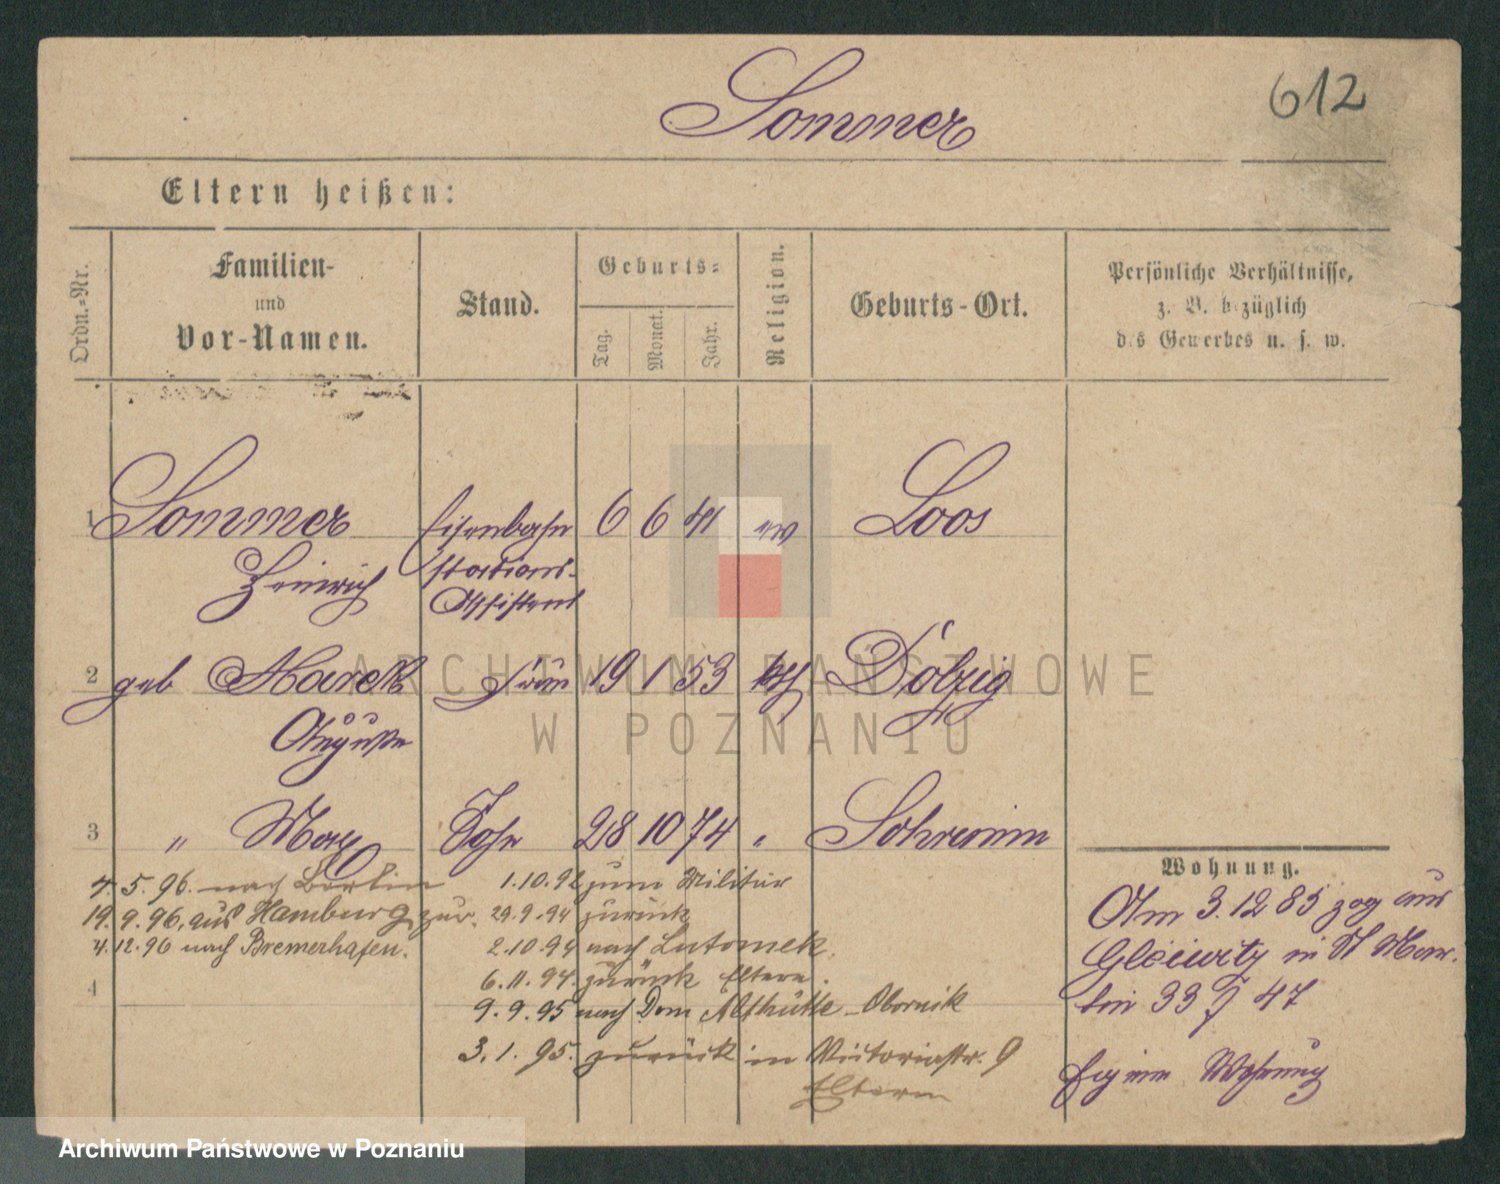 612
Sommer
Eltern heißen:
Ordn.-Nr.
Familien-
und
Vor-Namen.
Stand.
Geburts-
Tag.
Monat.
Jahr.
Religion.
Geburts-Ort.
Persönliche Verhältnisse,
z. B. bezüglich
des Gewerbes u. s. w.
1 Sommer Eisenbahn 6 6 41 ew Loos
Heinrich Stations-
Assistent
2 geb Marek Frau 19 1 53 kth Dolzig
Auguste
3 " Max Sohn 28 10 74 " Schrimm
4. 5. 96. nach Berlin
19. 9. 96. aus Hamburg zur.
4. 12. 96 nach Bremerhafen.
4
1. 10. 92 zum Militär
29. 9. 94 zurück
2. 10. 94 nach Lutomek.
6. 11. 94. zurück Eltern.
9. 9. 95 nach Dom Althütte - Obornik
3. 1. 95. zurück in Victoriastr. 9
Eltern
Wohnung.
Am 3. 12 85 zog aus
Gleiwitz in St Mar.
tin 33 47
Wohnung
ARCHIWUM PAŃSTWOWE
W POZNANIU
Archiwum Państwowe w Poznaniu